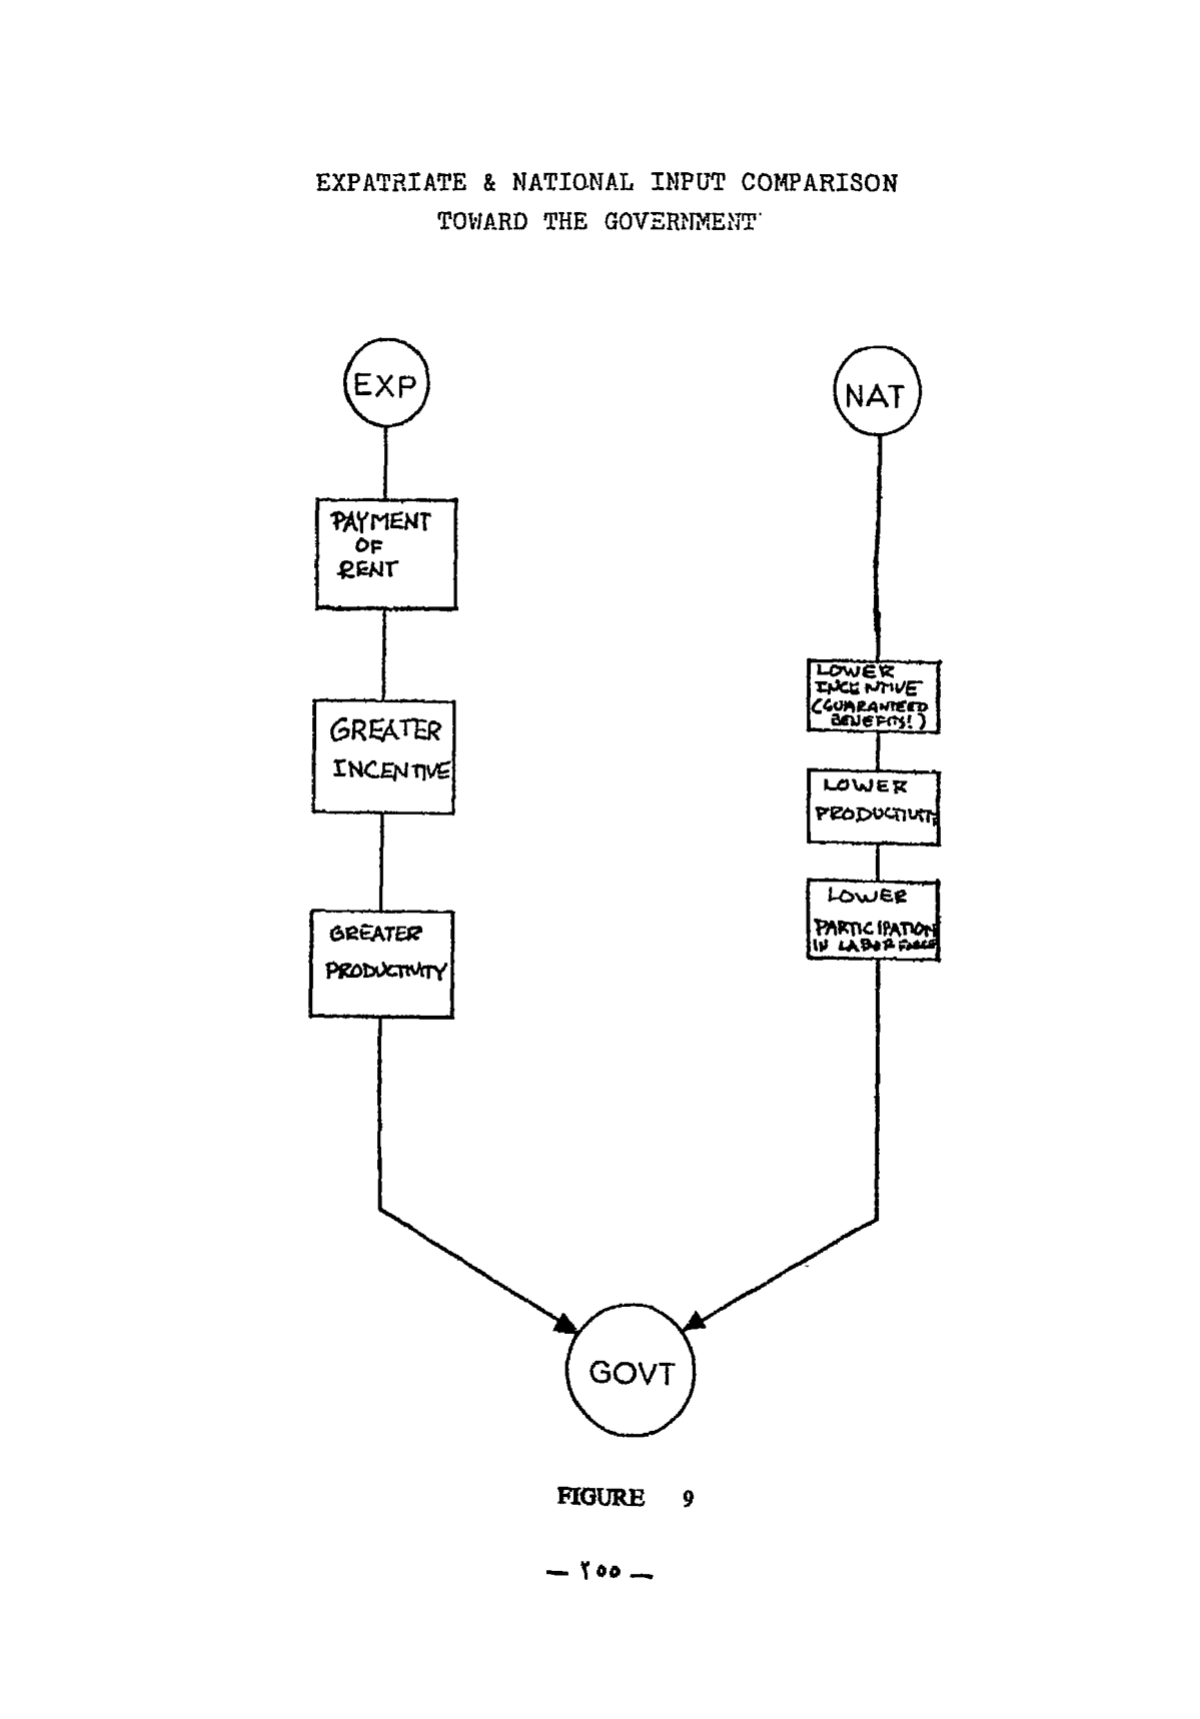 EXPATRIATE & NATIONAL INPUT COMPARISON
TOWARD THE GOVERNMENT
EXP
PAYMENT
OF
RENT
GREATER
INCENTIVE
GREATER
PRODUCTIVITY
NAT
LOWER
INCENTIVE
(GUARANTEED
BENEFITS!)
LOWER
PRODUCTIVITY
LOWER
PARTICIPATION
IN LABOR FORCE
GOVT
FIGURE 9
— ٢٥٥ —